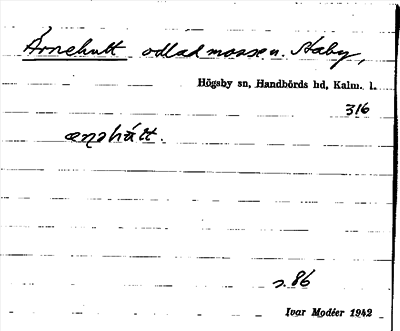 Årnehult odlad mosse u. Åsby,
Högsby sn, Handbörds hd, Kalm. l.
316
ææṇəhúlt.
s. 86
Ivar Modéer 1942